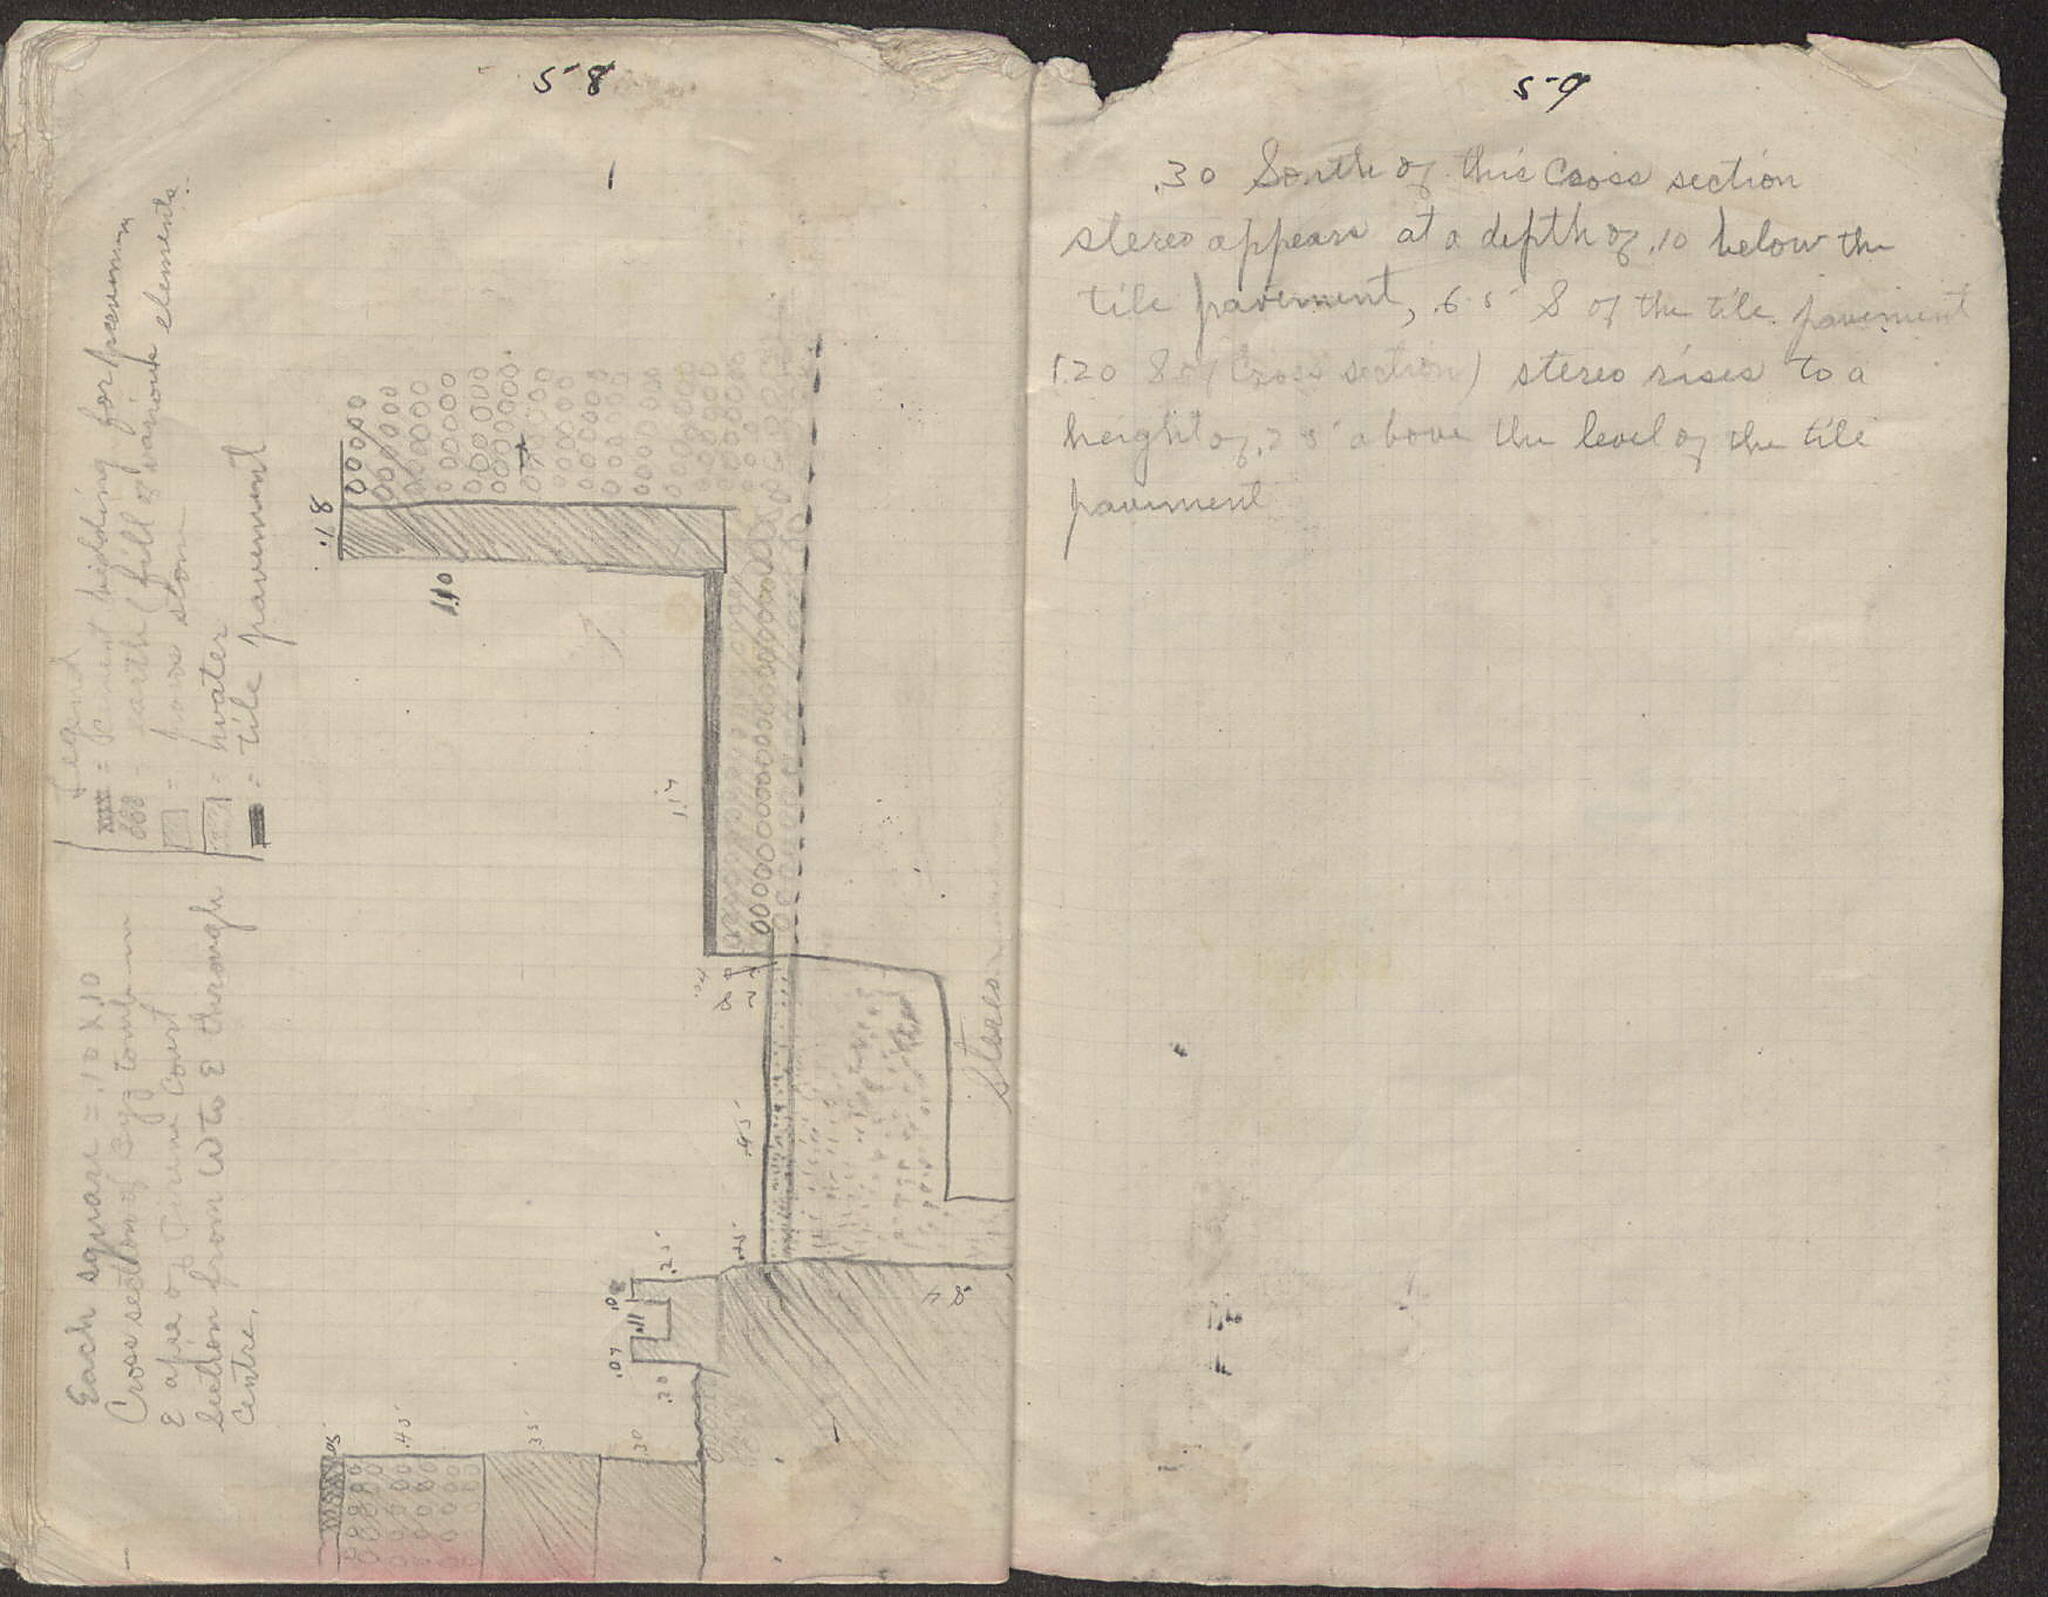 58
Each square = .10 x .10
Cross section of Byz tomb in
E apse of Pirene Court
Section from W to E through
Centre.
Legend
= cement bedding for pavement
= earth (fill of various elements.
= poros stone
= water
= tile pavement
.18
1.10
1.17
.45
.25
.08
.10
.11
.07
.20
.05
.45
.35
.30
.84
Stereo
59
.30 South of this Cross section
stereo appears at a depth of .10 below the
tile pavement, .65 S of the tile pavement
1.20 S of Cross section) stereo rises to a
height of .25 above the level of the tile
pavement